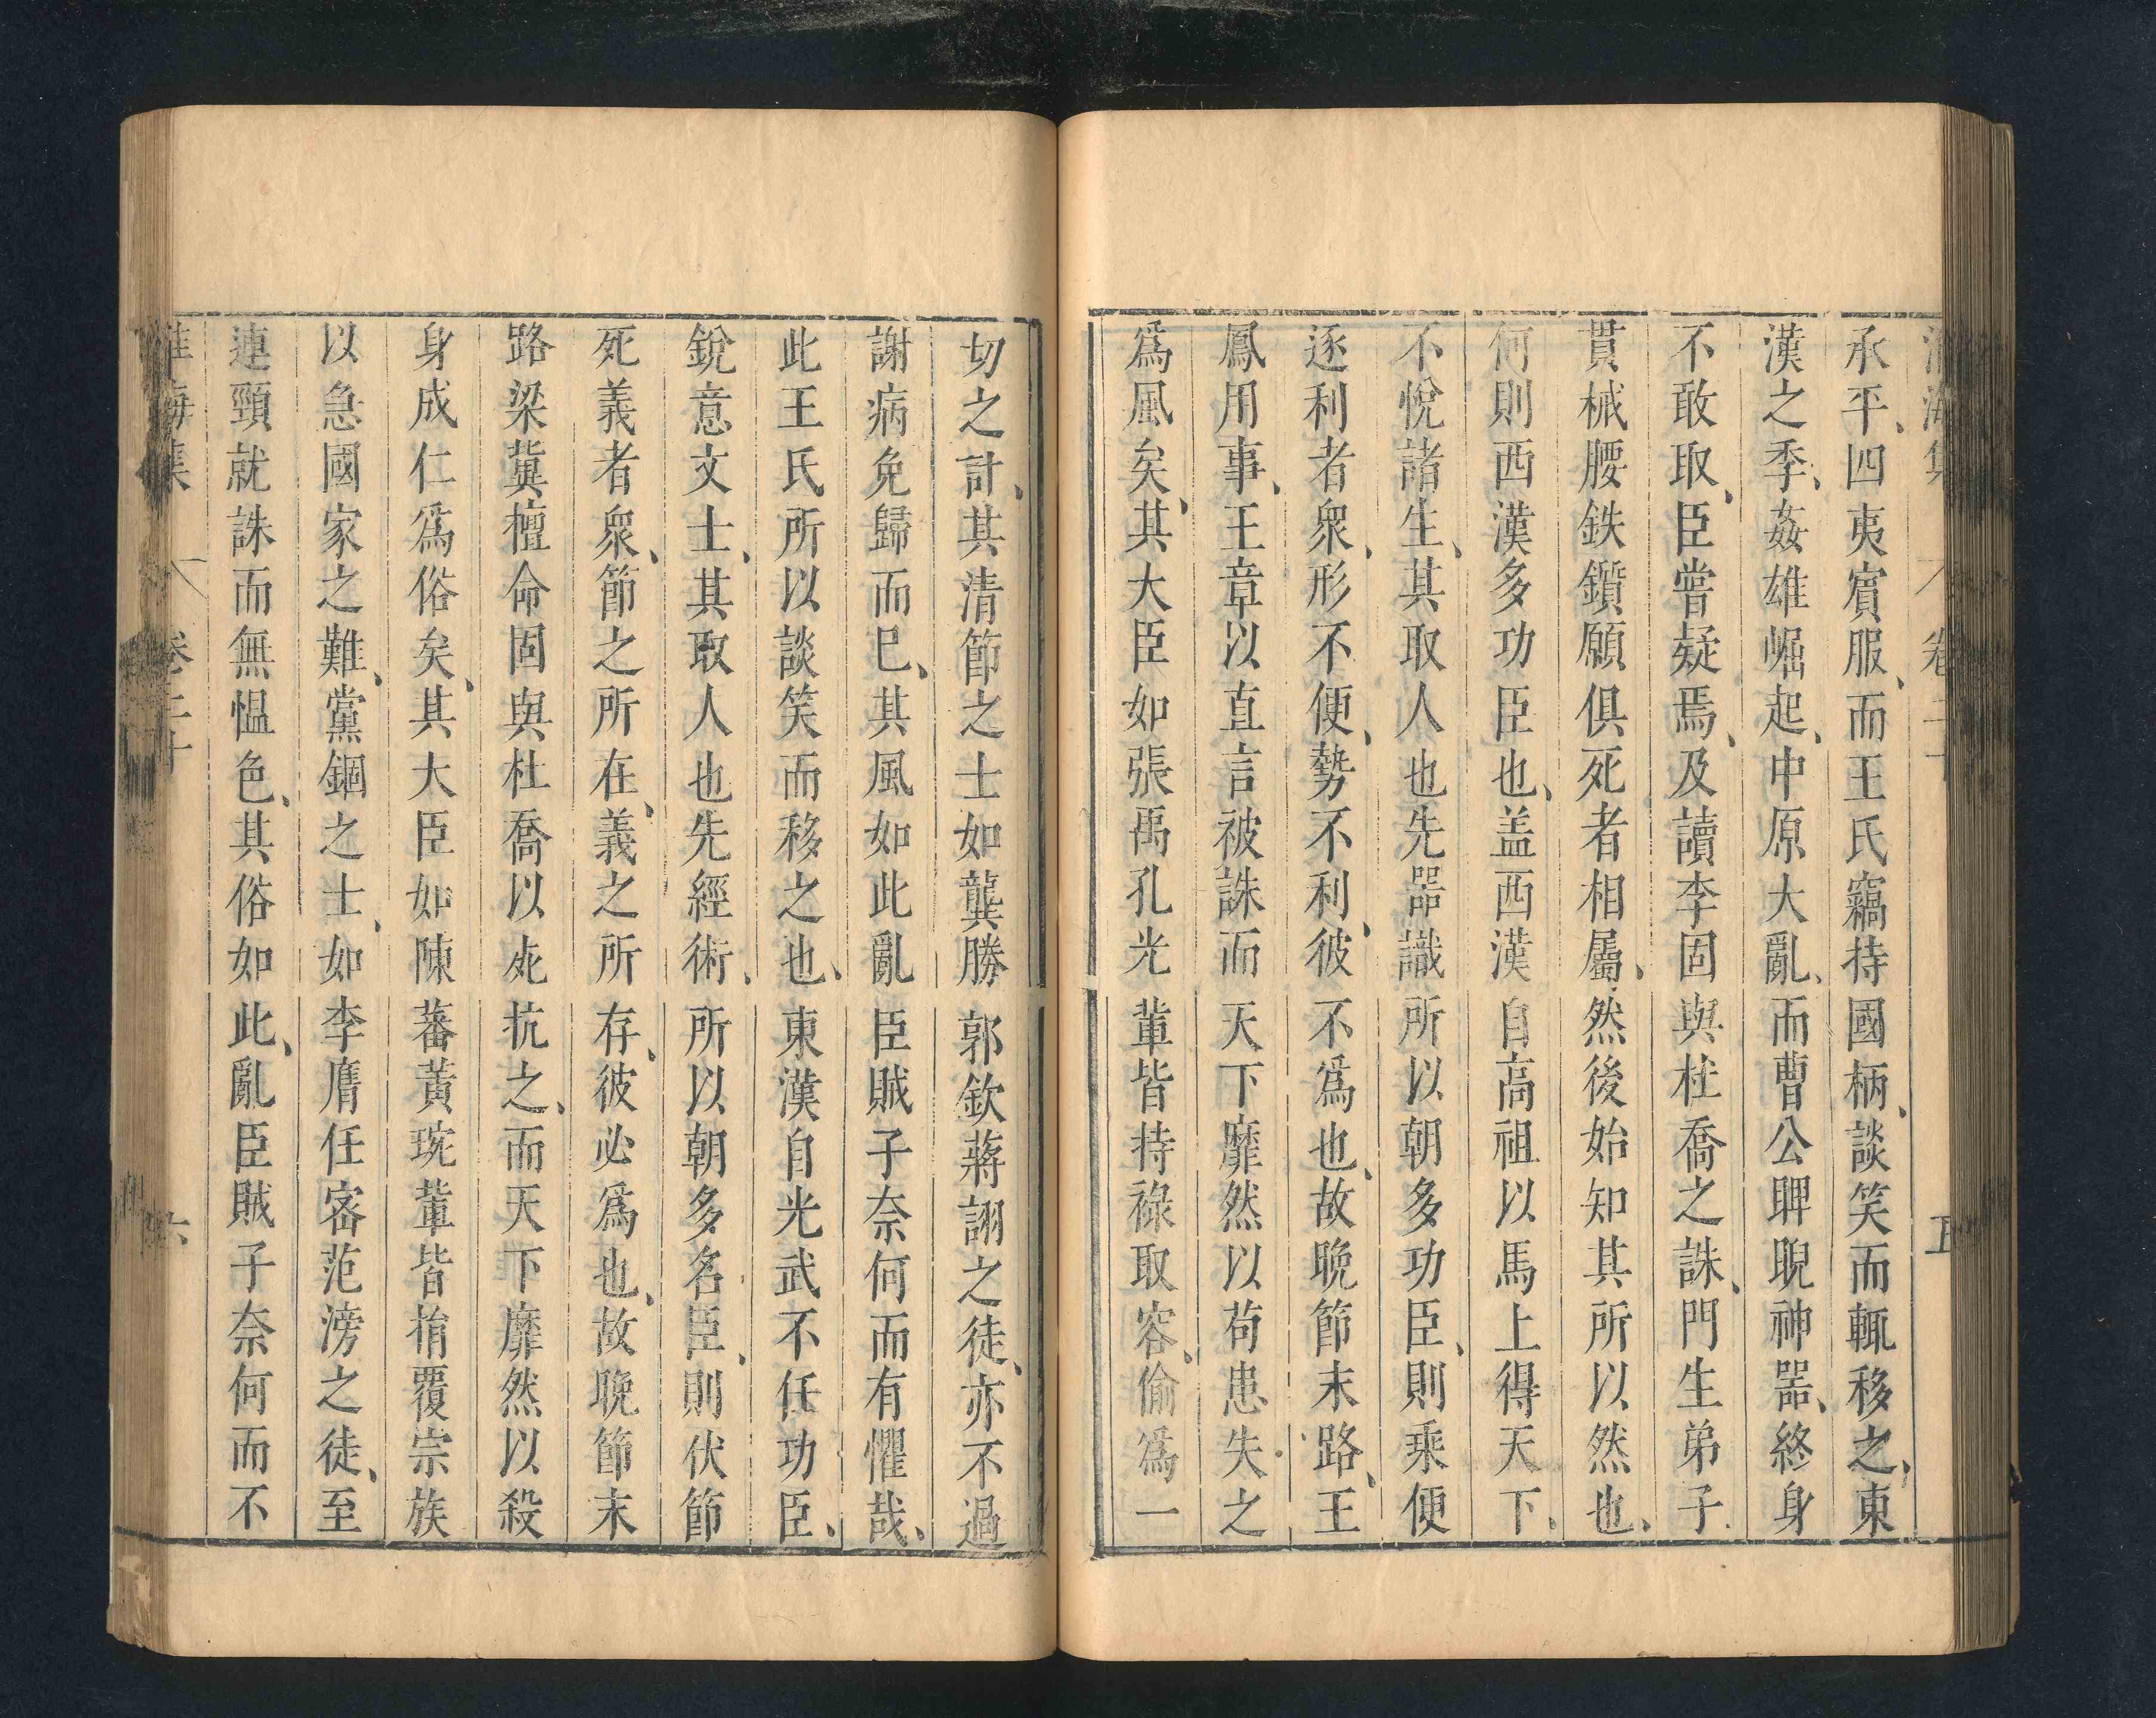 淮海集 卷二十 五
承平、四夷賓服、而王氏竊持國柄、談笑而輒移之、東
漢之季、姦雄崛起、中原大亂、而曹公睥睨神器、終身
不敢取、臣嘗疑焉、及讀李固與杜喬之誅、門生弟子
貫械腰鈇鑕願俱死者相屬、然後始知其所以然也、
何則西漢多功臣也、盖西漢自高祖以馬上得天下、
不悅諸生、其取人也先器識所以朝多功臣、則乘便
逐利者衆、形不便、勢不利、彼不爲也、故晚節末路、王
鳳用事、王章以直言被誅而天下靡然以苟患失之
爲風矣、其大臣如張禹孔光輩皆持祿取容、偷爲一
切之計、其清節之士如龔勝郭欽蔣詡之徒、亦不過
謝病免歸而已、其風如此亂臣賊子奈何而有懼哉、
此王氏所以談笑而移之也、東漢自光武不任功臣、
銳意文士、其取人也先經術、所以朝多名臣、則伏節
死義者衆、節之所在、義之所存、彼必爲也、故晚節末
路梁冀擅命固與杜喬以死抗之、而天下靡然以殺
身成仁爲俗矣、其大臣如陳蕃黃琬輩皆捐覆宗族
以急國家之難、黨錮之士、如李膺任宻范滂之徒、至
連頸就誅而無愠色、其俗如此、亂臣賊子奈何而不
淮海集 卷二十 六